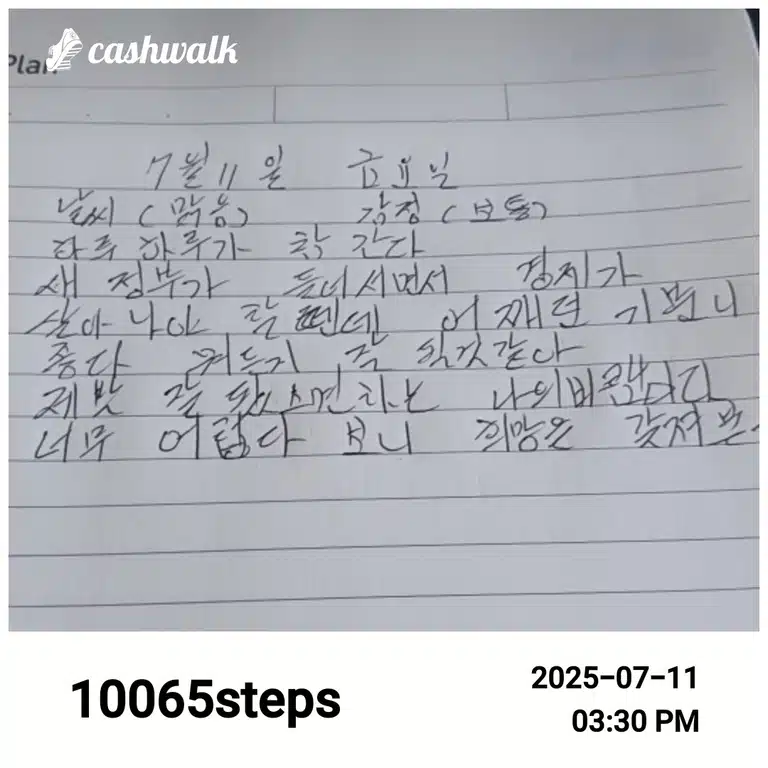 Plan
cashwalk
7월 11일 금요일
날씨 (맑음) 감정 (보통)
하루 하루가 착 간다
새 정부가 들어서면서 경제가
살아나야 할 뗀데 어째던 기분니
좋다 뭐든지 잘 될것같아
제밧 잘 됬스면하는 나의바램이다
너무 어렵다 보니 희망은 갖져본
10065steps
2025-07-11
03:30 PM